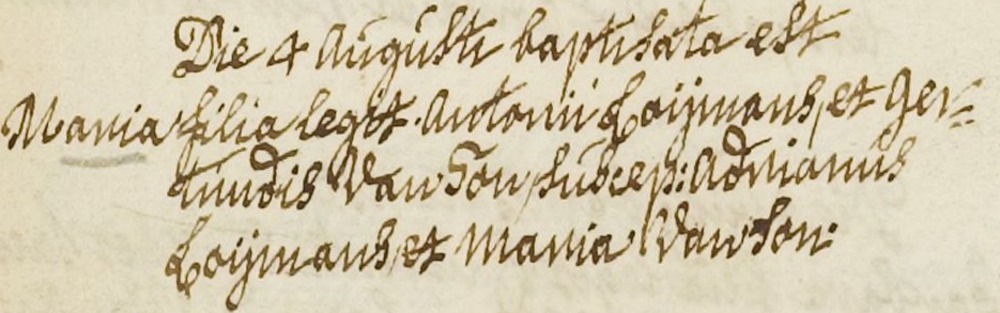 Die 4 Augusti baptisata est
Maria filia legit. Antonii Loijmans, et Ger=
trudis Van Son, suscep: Adrianus
Loijmans, et Maria Van Son.